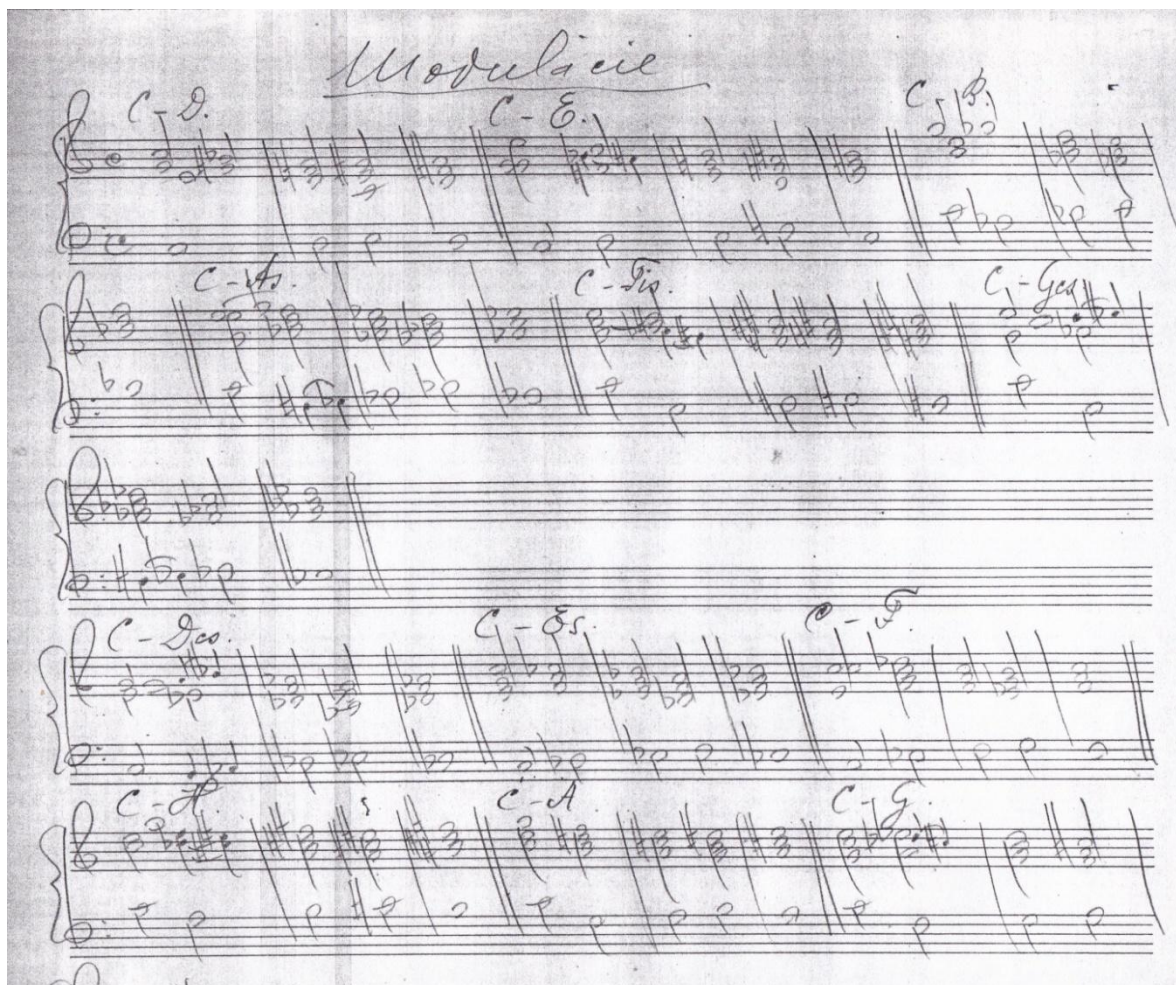 Modulácie
C - D. C - E. C - B.
C - As. C - Fis. C - Ges.
C - Des. C - Es. C - F.
C - H. C - A. C - G.